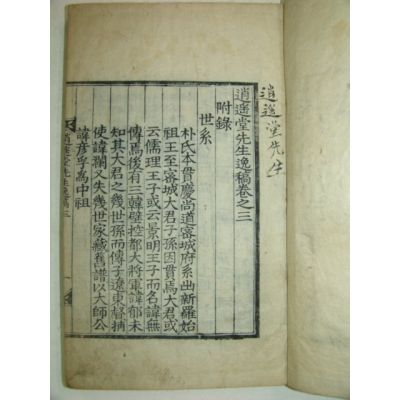 逍遥堂先生
逍遥堂先生逸稿卷之三
附錄
世系
朴氏本貫慶尚道密城府系出新羅始
祖王至密城大君子孫因貫焉大君或
云儒理王子或云景明王子而名諱無
傳焉後有三韓壁控都大將軍諱郁未
知其大君之幾世孫而傳子遼東督捕
使諱瀾又失幾世家藏舊譜以大師公
諱彦孚爲中祖
逍遥堂先生逸稿三